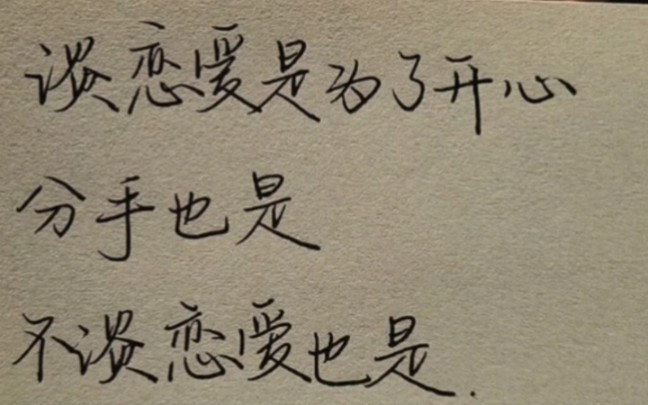 谈恋爱是为了开心
分手也是
不谈恋爱也是.